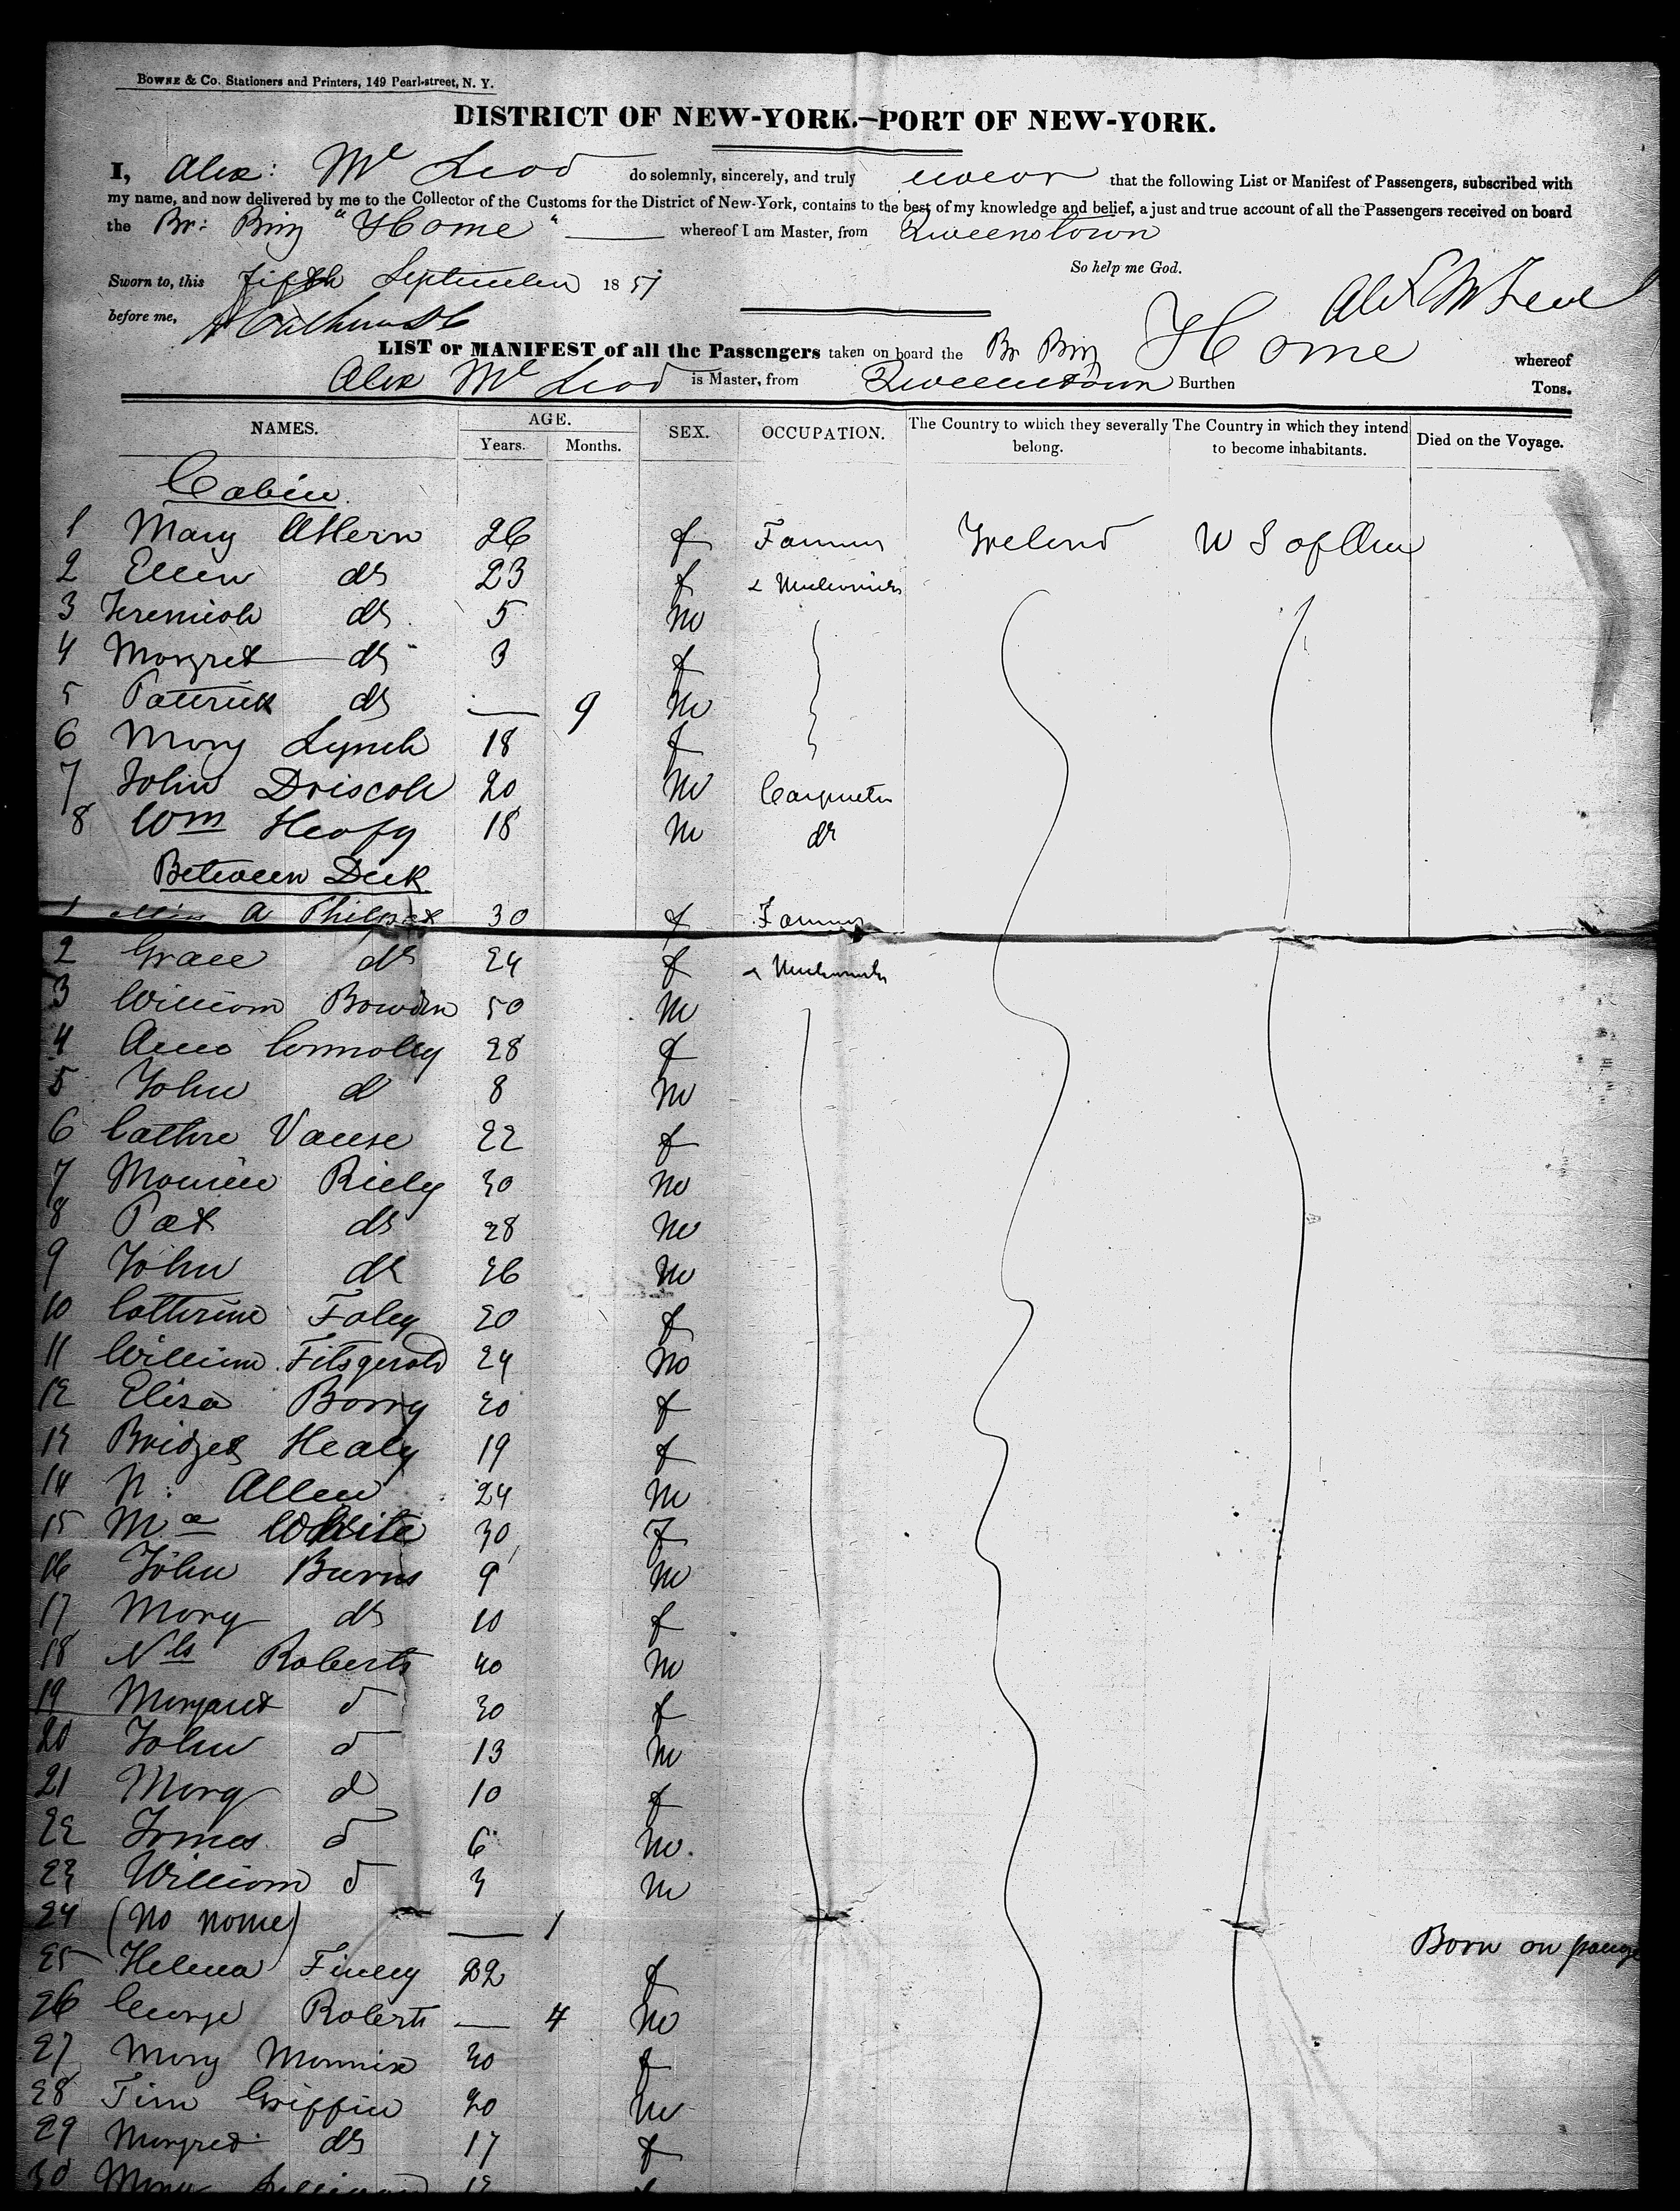 BOWNE & Co. Stationers and Printers, 149 Pearl-street, N. Y.
DISTRICT OF NEW-YORK.—PORT OF NEW-YORK.
I, Alex: Mc Leod do solemnly, sincerely, and truly swear that the following List or Manifest of Passengers, subscribed with
my name, and now delivered by me to the Collector of the Customs for the District of New-York, contains to the best of my knowledge and belief, a just and true account of all the Passengers received on board
the Br: Brig "Home" whereof I am Master, from Queenstown
So help me God.
Sworn to, this fifth September 1851
before me,
LIST or MANIFEST of all the Passengers taken on board the Br Brig Home whereof
Alex Mc Leod is Master, from Queenstown Burthen Tons.
NAMES. AGE. SEX. OCCUPATION. The Country to which they severally belong. The Country in which they intend to become inhabitants. Died on the Voyage.
Years. Months.
Cabin
1 Mary Ahern 26 f Farmers Ireland U S of Am
2 Ellen do 23 f & Mechanics
3 Jeremiah do 5 M
4 Margret do 3 f
5 Pattrick do — 9 M
6 Mary Lynch 18 f
7 John Driscoll 20 M Carpenter
8 Wm 18 M do
Between Deck
1 A 30 f Farmers
2 Grace do 24 f & Mechanics
3 William Bowden 50 M
4 Connolly 28 f
5 John d 8 M
6 Vause 22 f
7 Riely 30 M
8 Pat do 28 M
9 John do 26 M
10 Catherine Foley 20 f
11 William Fitsgerald 24 M
12 Elisa Barry 20 f
13 Bridget Healy 19 f
14 N: Allen 24 M
15 White 30 f
16 John Burns 9 M
17 Mary do 10 f
18 Nls Roberts 40 M
19 Margaret d 30 f
20 John d 13 M
21 Mary d 10 f
22 James d 6 M.
23 William d 3 M
24 (No name) — 1 Born on
25 Helena Finey 22 f
26 George Roberts — 4 M
27 Mary Mannix 20 f
28 Tim Griffin 20 M
29 Margret do 17 f
30 Mary